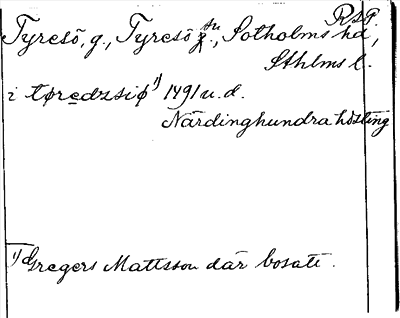 RSP.
Tyresö, g., Tyresö sn, Sotholms hd,
Sthlms l.
i tøredzsiø 1) 1491 u.d.
Närdinghundra hdsting
1) Gregers Mattsson där bosatt.